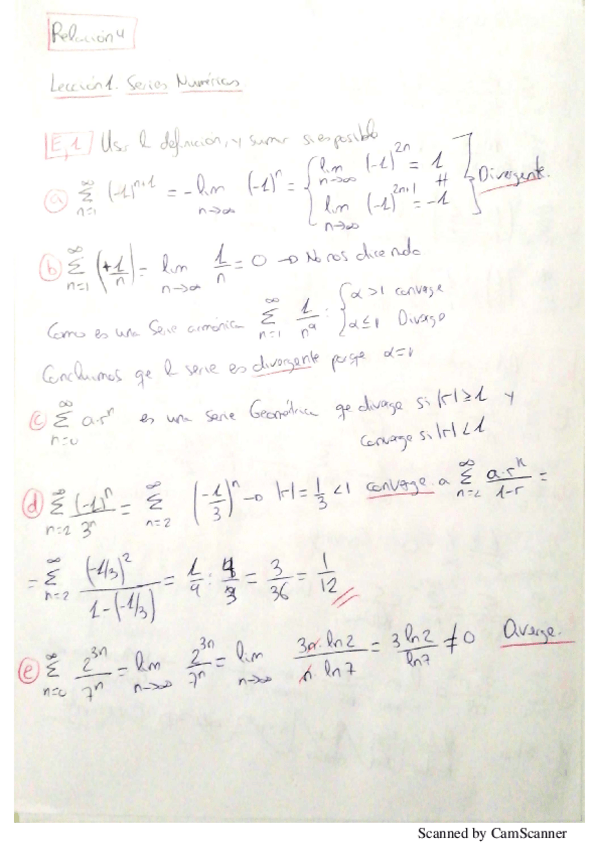 Relación 4
Lección 1. Series Numéricas
E.1 Usar la definición, y sumar si es posible
a) ∞ Σ n=1 (-1)^{n+1} = - lim n→∞ (-1)^n = { lim n→∞ (-1)^{2n} = 1 ≠ lim n→∞ (-1)^{2n+1} = -1 ] Divergente.
b) ∞ Σ n=1 (+1/n) = lim n→∞ 1/n = 0 → No nos dice nada
Como es una serie armónica ∞ Σ n=1 1/n^α : { α>1 converge α≤1 Diverge
Concluimos qe la serie es divergente porqe α=1
c) ∞ Σ n=0 a·r^n es una serie Geométrica qe diverge si |r|≥1 y
converge si |r|<1
d) ∞ Σ n=2 (-1)^n/3^n = ∞ Σ n=2 (-1/3)^n → |r| = 1/3 <1 converge a ∞ Σ n=2 a·r^k/1-r =
= ∞ Σ n=2 (-1/3)^2/1-(-1/3) = 1/9 : 4/3 = 3/36 = 1/12
e) ∞ Σ n=0 2^{3n}/7^n = lim n→∞ 2^{3n}/7^n = lim n→∞ 3n·ln2/n·ln7 = 3ln2/ln7 ≠ 0 Diverge.
Scanned by CamScanner